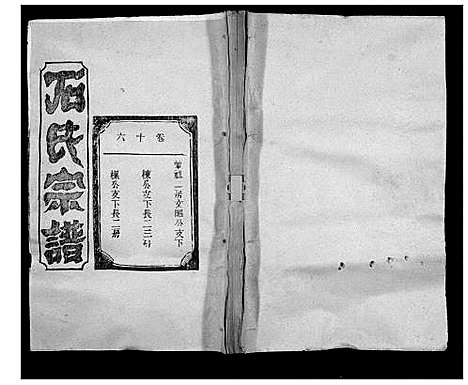 石氏宗譜
卷十六
二房文國公支下
棟公支下長二三房
公支下長二房